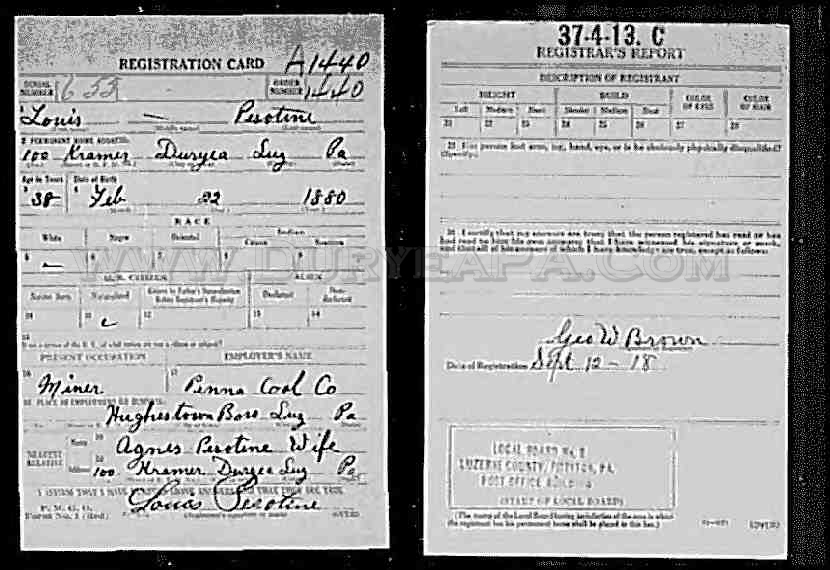 REGISTRATION CARD A1440
SERIAL NUMBER 1655 ORDER NUMBER 1440
1 Louis — Perotine
(Middle name) (Last name)
2 PERMANENT HOME ADDRESS:
100 Kramer Duryea Luz Pa
Age in Years Date of Birth
3 38 4 Feb 22 1880
RACE
White Negro Oriental Indian
Citizen
5 6 7 8 9
U. S. CITIZEN ALIEN
Native Born Naturalized Citizen by Father's Naturalization Before Registrant's Majority Declarant Non-declarant
10 11 12 13 14
15
If not a citizen of the U. S., of what nation are you a citizen or subject?
PRESENT OCCUPATION EMPLOYER'S NAME
16 Miner 17 Penna Coal Co
18 PLACE OF EMPLOYMENT OR BUSINESS:
Hughestown Boro Luz Pa
NEAREST RELATIVE Name 19 Agnes Perotine Wife
Address 20 100 Kramer Duryea Luz Pa
I AFFIRM THAT I HAVE VERIFIED ABOVE ANSWERS AND THAT THEY ARE TRUE
P. M. G. O.
Form No. 1 (Red) Louis Perotine
(Registrant's signature or mark) (OVER)
37-4-13. C
REGISTRAR'S REPORT
DESCRIPTION OF REGISTRANT
HEIGHT BUILD COLOR OF EYES COLOR OF HAIR
Tall Medium Short Slender Medium Stout
21 22 23 24 25 26 27 28
29 Has person lost arm, leg, hand, eye, or is he obviously physically disqualified?
(Specify.)
30 I certify that my answers are true; that the person registered has read or has
had read to him his own answers; that I have witnessed his signature or mark,
and that all of his answers of which I have knowledge are true, except as follows:
Geo W Brown
Date of Registration Sept 12 - 18
LOCAL BOARD No.
LUZERNE COUNTY, PITTSTON, PA.
POST OFFICE BUILDING
(STAMP OF LOCAL BOARD)
(The stamp of the Local Board having jurisdiction of the area in which
the registrant has his permanent home shall be placed in this box.)
(OVER)
WWW.DURYEAPA.COM